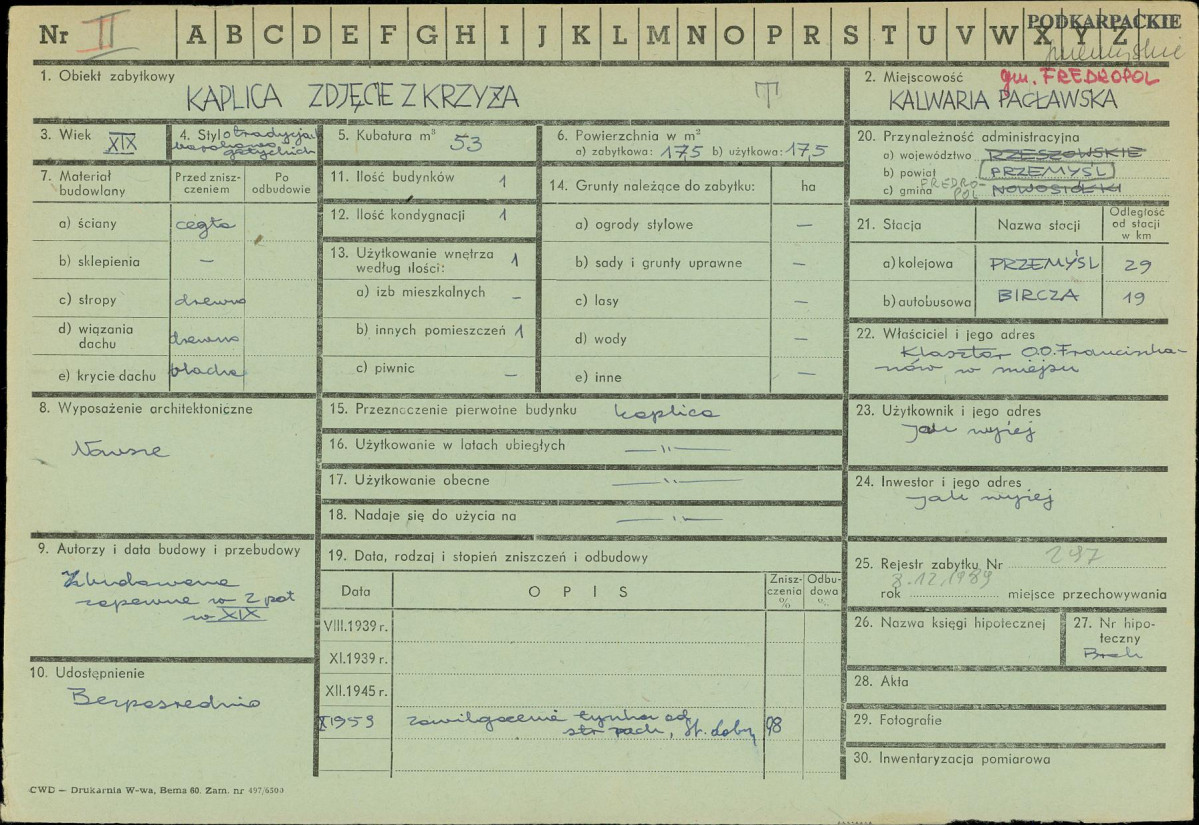 Nr II A B C D E F G H I J K L M N O P R S T U V W X Y Z
PODKARPACKIE
przemyskie
1. Obiekt zabytkowy
KAPLICA ZDJĘCIE Z KRZYŻA T
2. Miejscowość gm. FREDROPOL
KALWARIA PACŁAWSKA
3. Wiek XIX
4. Styl o tradycjach
barokowo
gotyckich
5. Kubatura m³ 53
6. Powierzchnia w m²
a) zabytkowa: 17,5 b) użytkowa: 17,5
7. Materiał budowlany
Przed zniszczeniem
Po odbudowie
a) ściany cegła
b) sklepienia —
c) stropy drewno
d) wiązania dachu drewno
e) krycie dachu blacha
8. Wyposażenie architektoniczne
9. Autorzy i data budowy i przebudowy
Zbudowana
zapewne w 2 poł
w XIX
10. Udostępnienie
Bezpośrednio
11. Ilość budynków 1
12. Ilość kondygnacji 1
13. Użytkowanie wnętrza według ilości: 1
a) izb mieszkalnych —
b) innych pomieszczeń 1
c) piwnic —
14. Grunty należące do zabytku: ha
a) ogrody stylowe —
b) sady i grunty uprawne —
c) lasy —
d) wody —
e) inne —
15. Przeznaczenie pierwotne budynku kaplica
16. Użytkowanie w latach ubiegłych — " —
17. Użytkowanie obecne — " —
18. Nadaje się do użycia na — " —
19. Data, rodzaj i stopień zniszczeń i odbudowy
Data
OPIS
Zniszczenia %
Odbudowa %
VIII.1939 r.
XI.1939 r.
XII.1945 r.
X 1959 zawilgocenie tynku od
str. zach, st. dobry 98
20. Przynależność administracyjna
a) województwo RZESZOWSKIE
b) powiat PRZEMYŚL
c) gmina FREDROPOL NOWOSIÓŁKI
21. Stacja
Nazwa stacji
Odległość od stacji w km
a) kolejowa PRZEMYŚL 29
b) autobusowa BIRCZA 19
22. Właściciel i jego adres
Klasztor O.O. Franciszka-
nów w miejscu
23. Użytkownik i jego adres
Jak wyżej
24. Inwestor i jego adres
Jak wyżej
25. Rejestr zabytku Nr 297
8.12.1989
rok ........ miejsce przechowywania
26. Nazwa księgi hipotecznej
27. Nr hipoteczny
Brak
28. Akta
29. Fotografie
30. Inwentaryzacja pomiarowa
CWD — Drukarnia W-wa, Bema 60. Zam. nr 497/6500